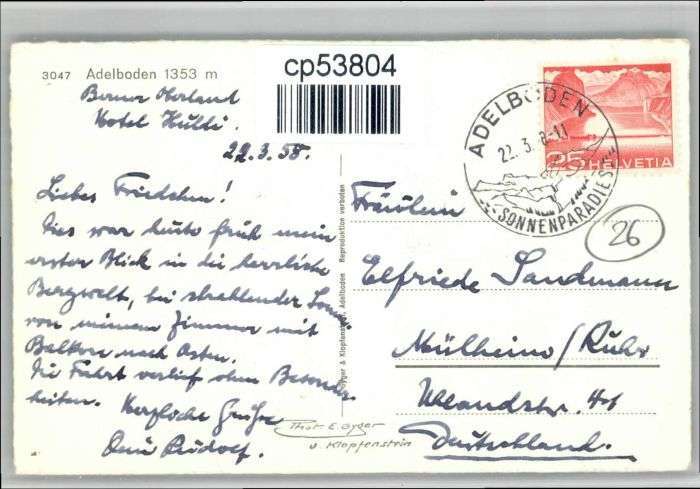 3047 Adelboden 1353 m
cp53804
Berner Oberland
Hotel Huldi.
22.3.58.
Liebes Friedchen!
Dies war heute früh mein
erster Blick in die herrliche
Bergwelt, bei strahlender Sonne
von meinem Zimmer mit
Balkon nach Osten.
Die Fahrt verlief ohne Besonder-
heiten. Herzliche Grüße
Dein Rudolf.
Gyger & Klopfenstein, Adelboden Reproduktion verboten
Phot. E. Gyger
u. Klopfenstein
ADELBODEN
22.3.8-11
SONNENPARADIES
25 HELVETIA
26
Fräulein
Elfriede Sandmann
Mülheim/Ruhr
Uhlandstr. 41
Deutschland.